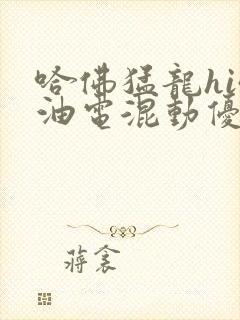 哈佛猛龍hi
油電混動優
蔣衾